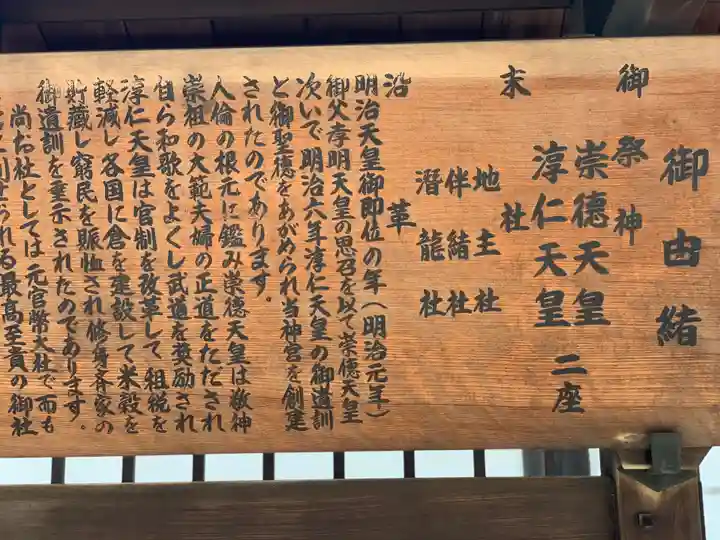 御由緒
御祭神
崇徳天皇
淳仁天皇 二座
末社
地主社
伴緒社
潜龍社
沿革
明治天皇御即位の年(明治元年)
御父孝明天皇の思召を以て崇徳天皇
次いで明治六年淳仁天皇の御遺訓
と御聖徳をあがめられ当神宮を創建
されたのであります。
人倫の根元に鑑み崇徳天皇は敬神
崇祖の大範夫婦の正道をただされ
自ら和歌をよくし武道を奨励され
淳仁天皇は官制を改革して租税を
軽減し各国に倉を建設して米穀を
貯蔵し窮民を賑恤され修身斉家の
御遺訓を垂示されたのであります。
尚お社としては元官幣大社で而も
せられる最高至貴の御社